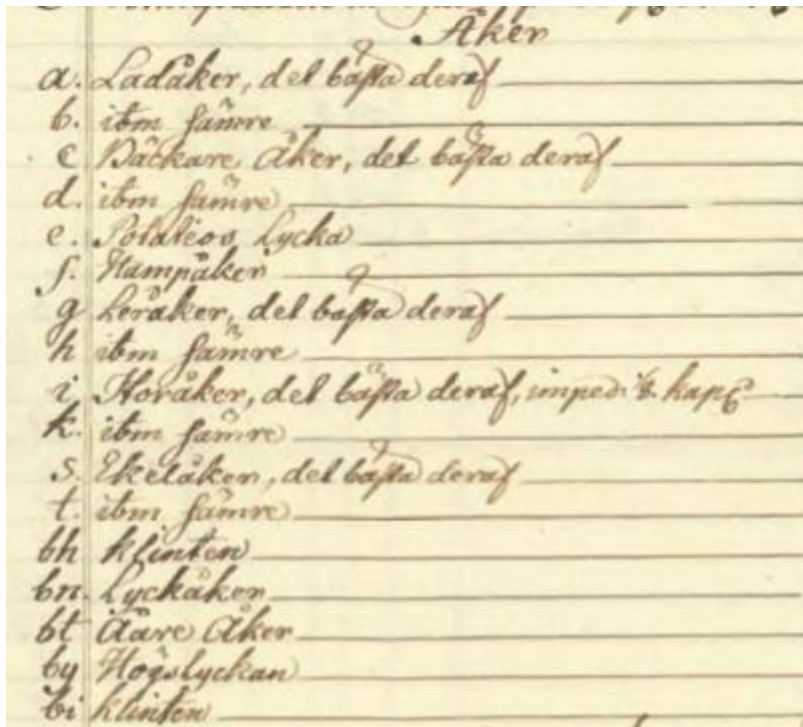 Åker
a. Ladåker, det bästa deraf
b. ibm sämre
c Bäckare Åker, det bästa deraf
d. ibm sämre
e. Potateos Lycka
f. Hampåker
g Leråker, det bästa deraf
h ibm sämre
i Storåker, det bästa deraf, imped: kapl
k. ibm sämre
s. Ekelåker, det bästa deraf
t. ibm sämre
bh klinten
bn. Lyckåker
bt Åker
by Högslyckan
bi klinten